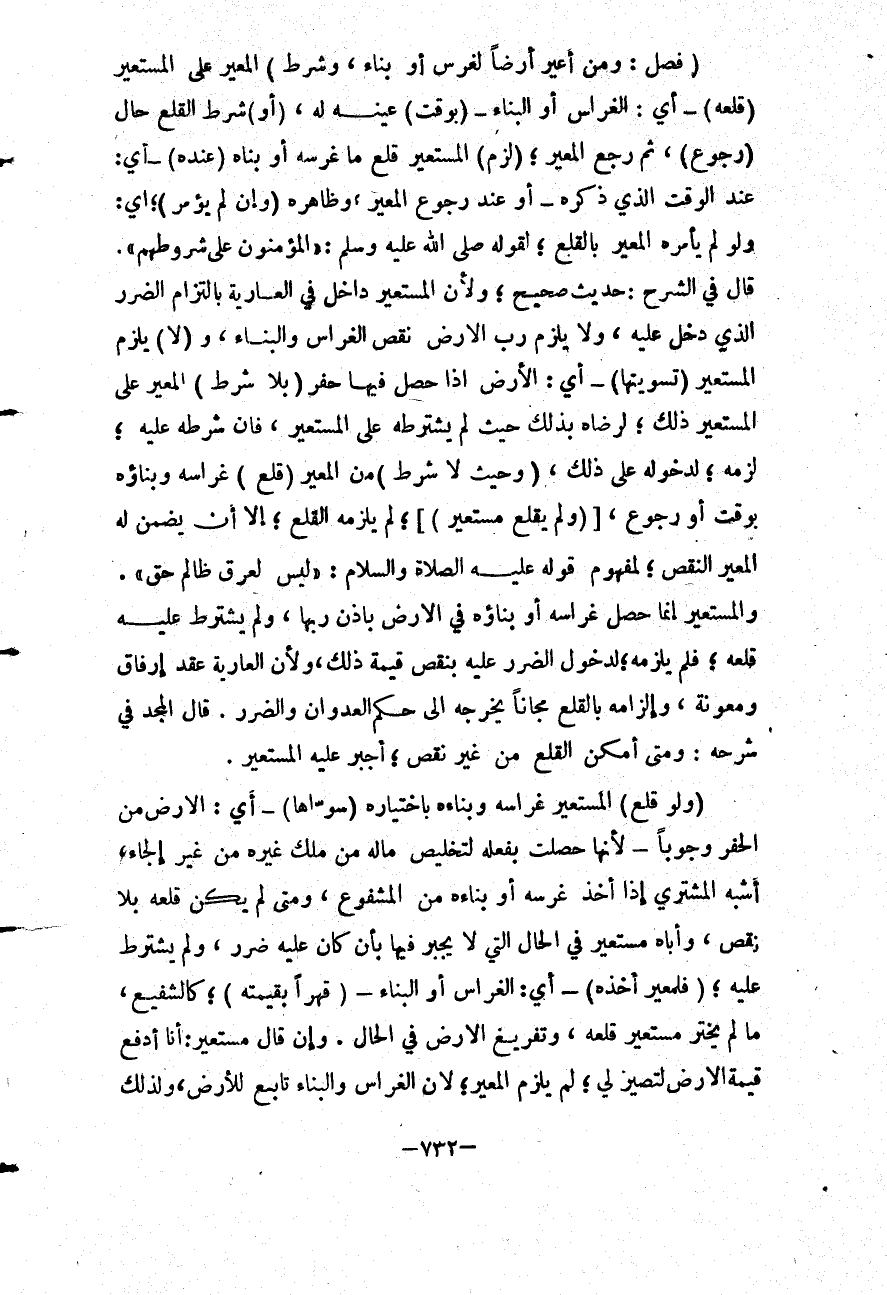 ( فصل : ومن أعير أرضاً لغرس أو بناء ، وشرط ) المعير على المستعير
(قلعه) – أي : الغراس أو البناء – (بوقت) عينه له ، (أو) شرط القلع حال
(رجوع) ، ثم رجع المعير ؛ (لزم) المستعير قلع ما غرسه أو بناه (عنده) – أي:
عند الوقت الذي ذكره – أو عند رجوع المعير ، وظاهره (وإن لم يؤمر) ؛ اي:
ولو لم يأمره المعير بالقلع ؛ لقوله صلى الله عليه وسلم : «المؤمنون على شروطهم» .
قال في الشرح : حديث صحيح ؛ ولأن المستعير داخل في العارية بالتزام الضرر
الذي دخل عليه ، ولا يلزم رب الارض نقص الغراس والبناء ، و (لا) يلزم
المستعير (تسويتها) – أي : الأرض اذا حصل فيها حفر (بلا شرط ) المعير على
المستعير ذلك ؛ لرضاه بذلك حيث لم يشترطه على المستعير ، فان شرطه عليه ؛
لزمه ؛ لدخوله على ذلك ، ( وحيث لا شرط ) من المعير (قلع ) غراسه وبناؤه
بوقت أو رجوع ، [ (ولم يقلع مستعير ) ] ؛ لم يلزمه القلع ؛ إلا أن يضمن له
المعير النقص ؛ لمفهوم قوله عليه الصلاة والسلام : «ليس لعرق ظالم حق» .
والمستعير انما حصل غراسه أو بناؤه في الارض باذن ربها ، ولم يشترط عليه
قلعه ؛ فلم يلزمه ؛ لدخول الضرر عليه بنقص قيمة ذلك ، ولأن العارية عقد إرفاق
ومعونة ، وإلزامه بالقلع مجاناً يخرجه الى حكم العدوان والضرر . قال المجد في
شرحه : ومتى أمكن القلع من غير نقص ؛ أجبر عليه المستعير .
(ولو قلع) المستعير غراسه وبناءه باختياره (سوّاها) – أي : الارض من
الحفر وجوباً – لأنها حصلت بفعله لتخليص ماله من ملك غيره من غير إلجاء ،
أشبه المشتري إذا أخذ غرسه أو بناءه من المشفوع ، ومتى لم يكن قلعه بلا
نقص ، وأباه مستعير في الحال التي لا يجبر فيها بأن كان عليه ضرر ، ولم يشترط
عليه ؛ ( فلمعير أخذه) – أي : الغراس أو البناء – ( قهراً بقيمته ) ؛ كالشفيع ،
ما لم يختر مستعير قلعه ، وتفريغ الارض في الحال . وإن قال مستعير : أنا أدفع
قيمة الارض لتصيز لي ؛ لم يلزم المعير ؛ لان الغراس والبناء تابع للأرض ، ولذلك
–٧٣٢–